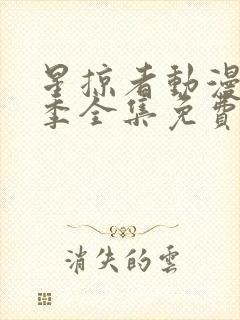 星掠者動漫
季全集免費
消失的雲